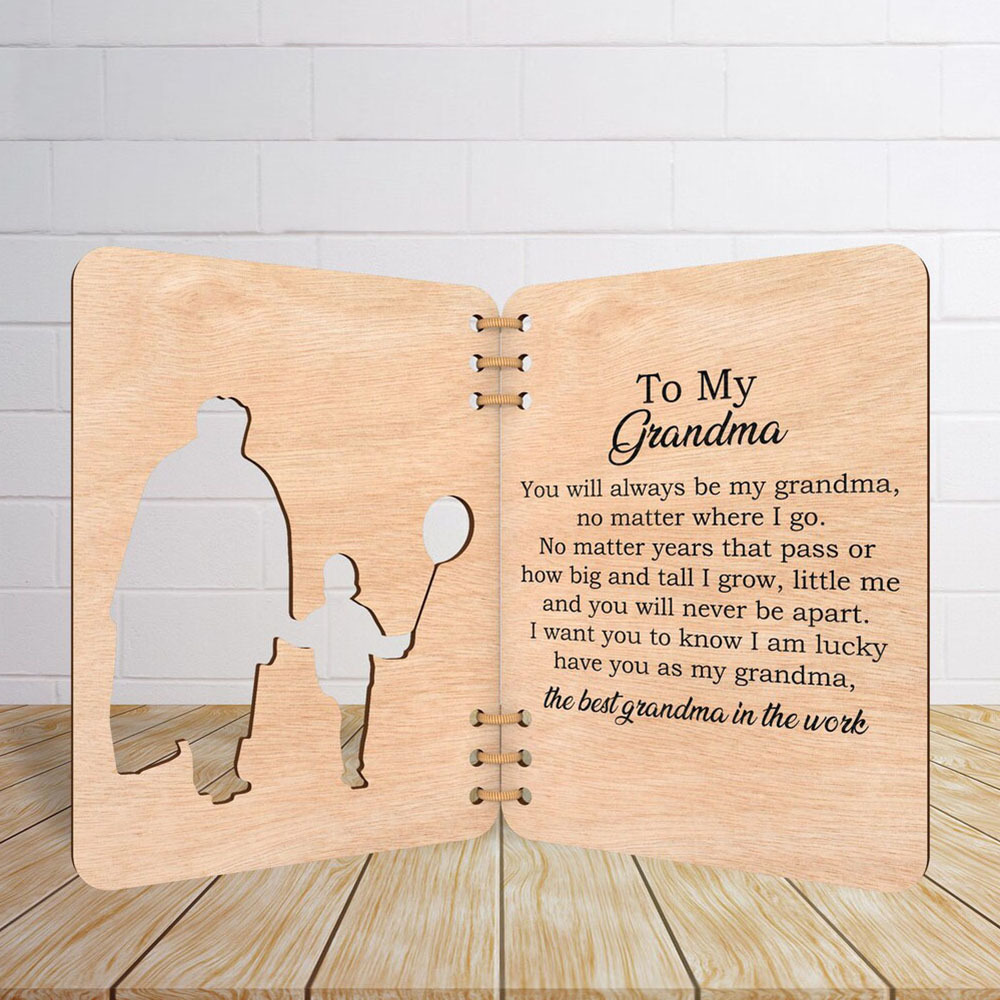 To My
Grandma
You will always be my grandma,
no matter where I go.
No matter years that pass or
how big and tall I grow, little me
and you will never be apart.
I want you to know I am lucky
have you as my grandma,
the best grandma in the work